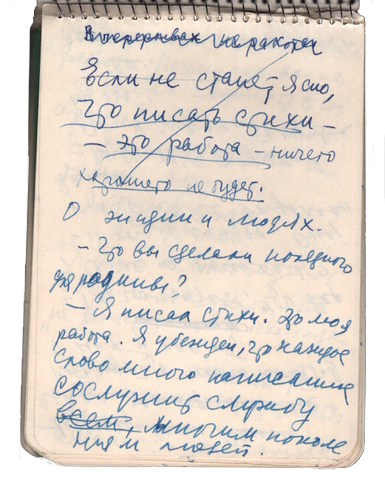 В перерывах на работы
Если не станет ясно,
Что писать стихи –
– это работа – ничего
хорошего не будет.
О жизни и людях.
– Что вы сделали полезного
для родины?
– Я писал стихи. Это моя
работа. Я убежден, что каждое
слово мною написанное
сослужит службу
всем, многим поколе
ниям людей.